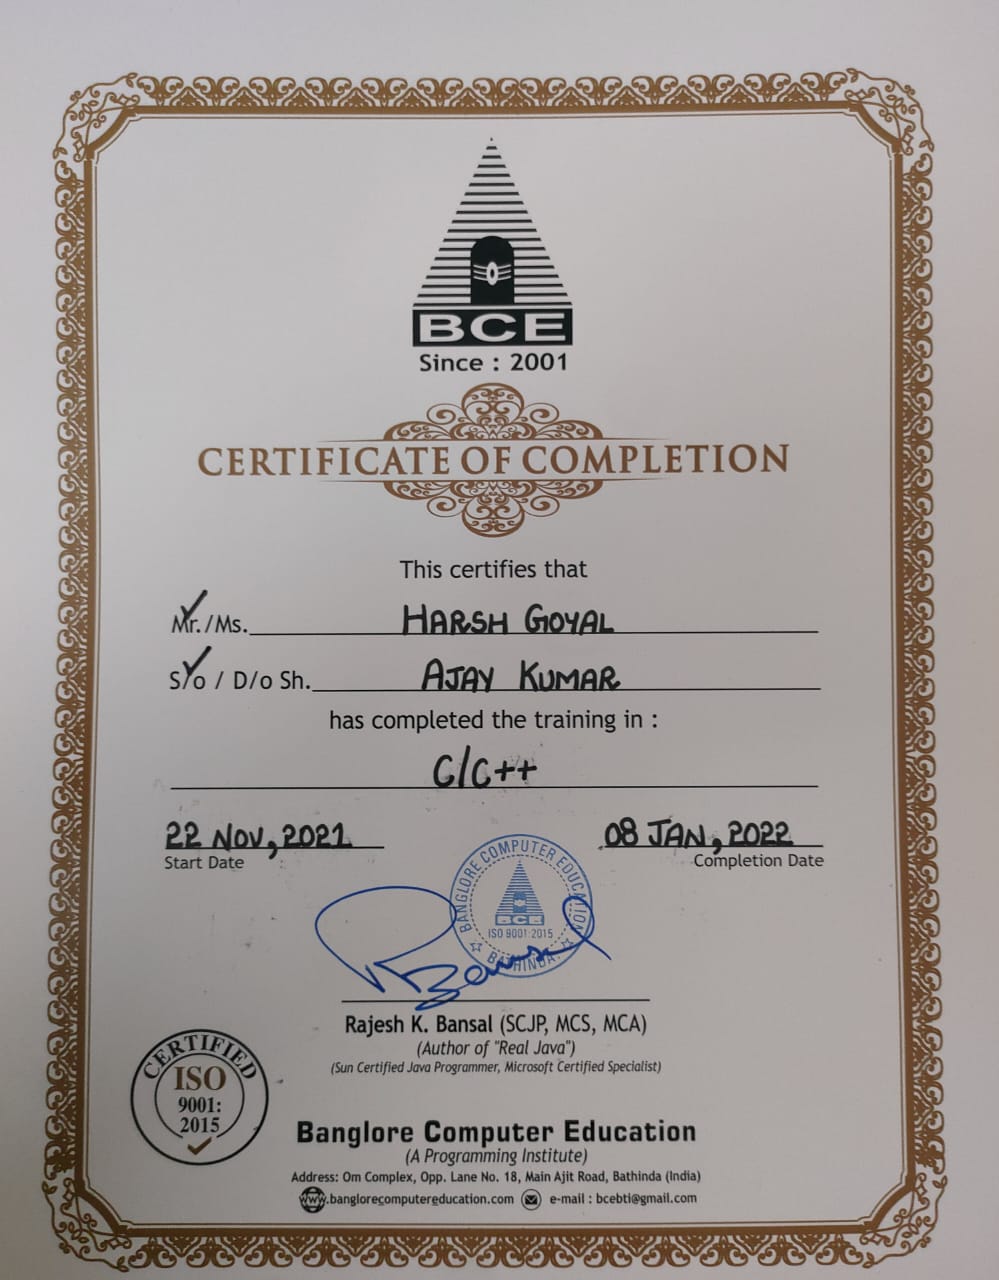 BCE
Since : 2001
CERTIFICATE OF COMPLETION
This certifies that
Mr./Ms. HARSH GOYAL
S/o / D/o Sh. AJAY KUMAR
has completed the training in :
C/C++
22 NOV, 2021 08 JAN, 2022
Start Date Completion Date
BANGLORE COMPUTER EDUCATION
BCE
ISO 9001:2015
BATHINDA
Bansal
Rajesh K. Bansal (SCJP, MCS, MCA)
(Author of "Real Java")
(Sun Certified Java Programmer, Microsoft Certified Specialist)
CERTIFIED
ISO
9001:
2015
Banglore Computer Education
(A Programming Institute)
Address: Om Complex, Opp. Lane No. 18, Main Ajit Road, Bathinda (India)
www.banglorecomputereducation.com e-mail : bcebti@gmail.com